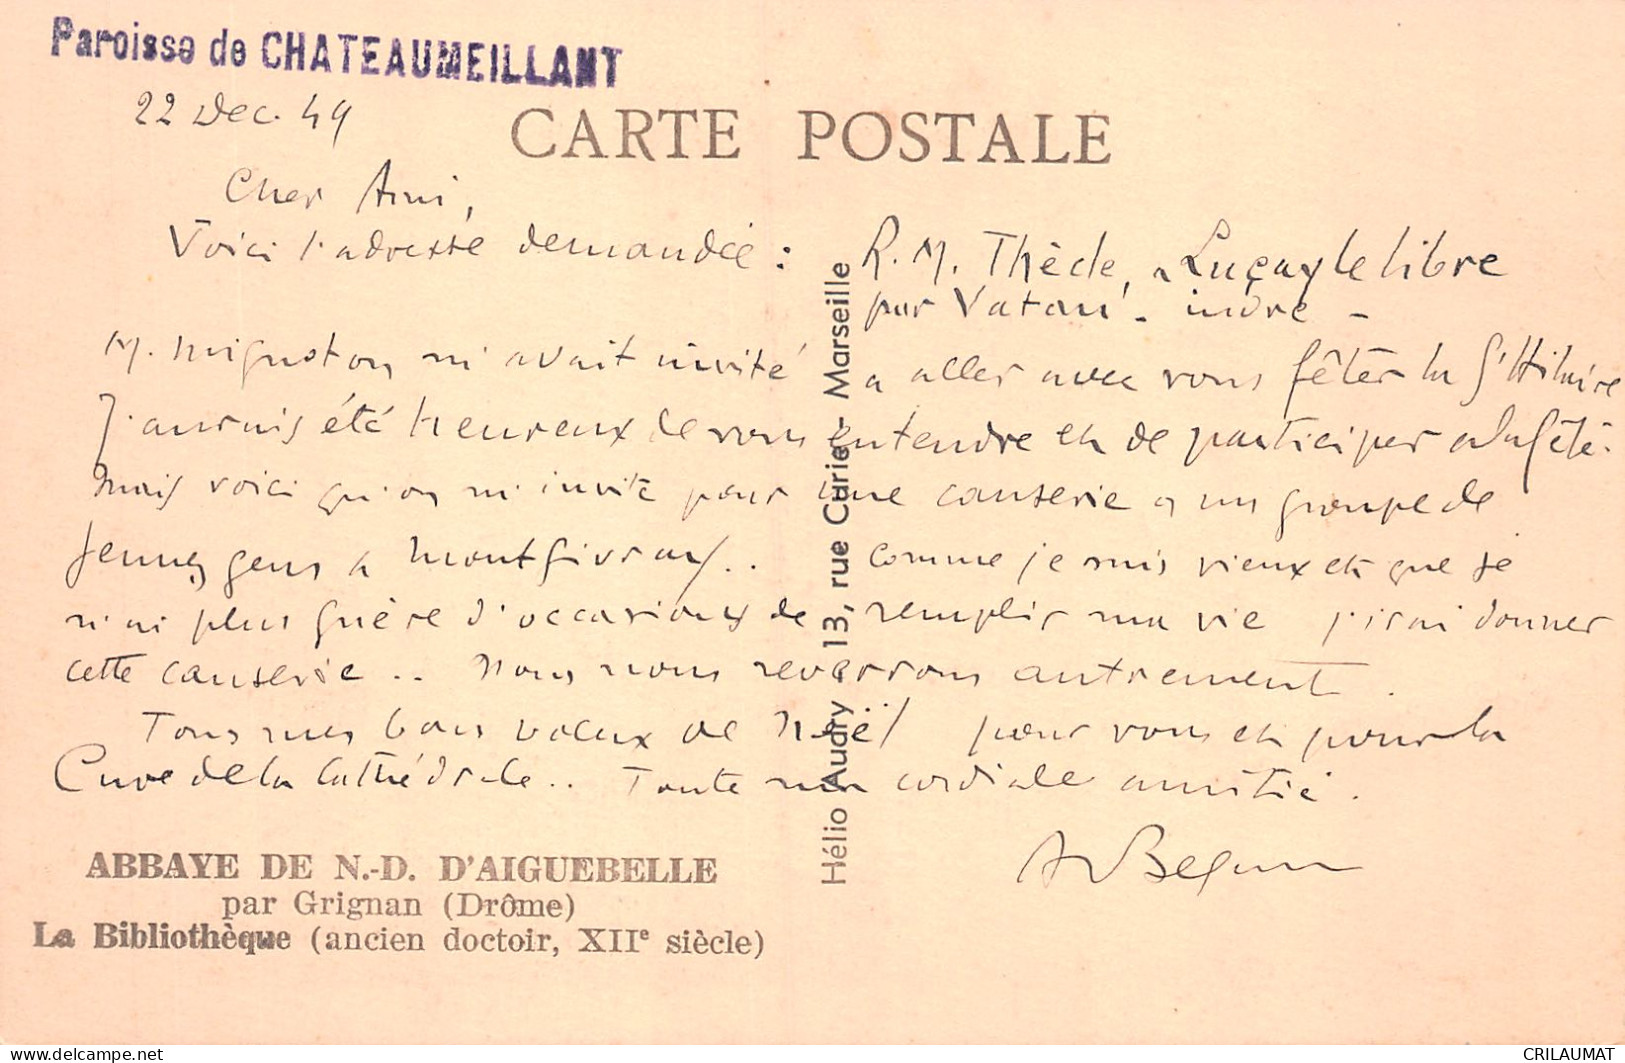 Paroisse de CHATEAUMEILLANT
22 Dec. 49
CARTE POSTALE
Cher Ami,
Voici l'adresse demandée : R. M. Thècle, à Luçay le libre
par Vatan. - indre -
M. mignoton m'avait invité à aller avec vous fêter la St Hilaire
J'aurais été heureux de vous entendre et de participer à la fête.
Mais voici qu'on m'invite pour une causerie à un groupe de
jeunes gens à Montgivray.. comme je suis vieux et que je
n'ai plus guère d'occasions de remplir ma vie j'irai donner
cette causerie.. Nous nous reverrons autrement.
Tous mes bons voeux de Noël pour vous et pour la
Cure de la Cathédrale.. Toute ma cordiale amitié.
ABBAYE DE N.-D. D'AIGUEBELLE
par Grignan (Drôme)
La Bibliothèque (ancien doctoir, XIIe siècle)
Hélio Audry - 13, rue Curie - Marseille
delcampe.net
CRILAUMAT